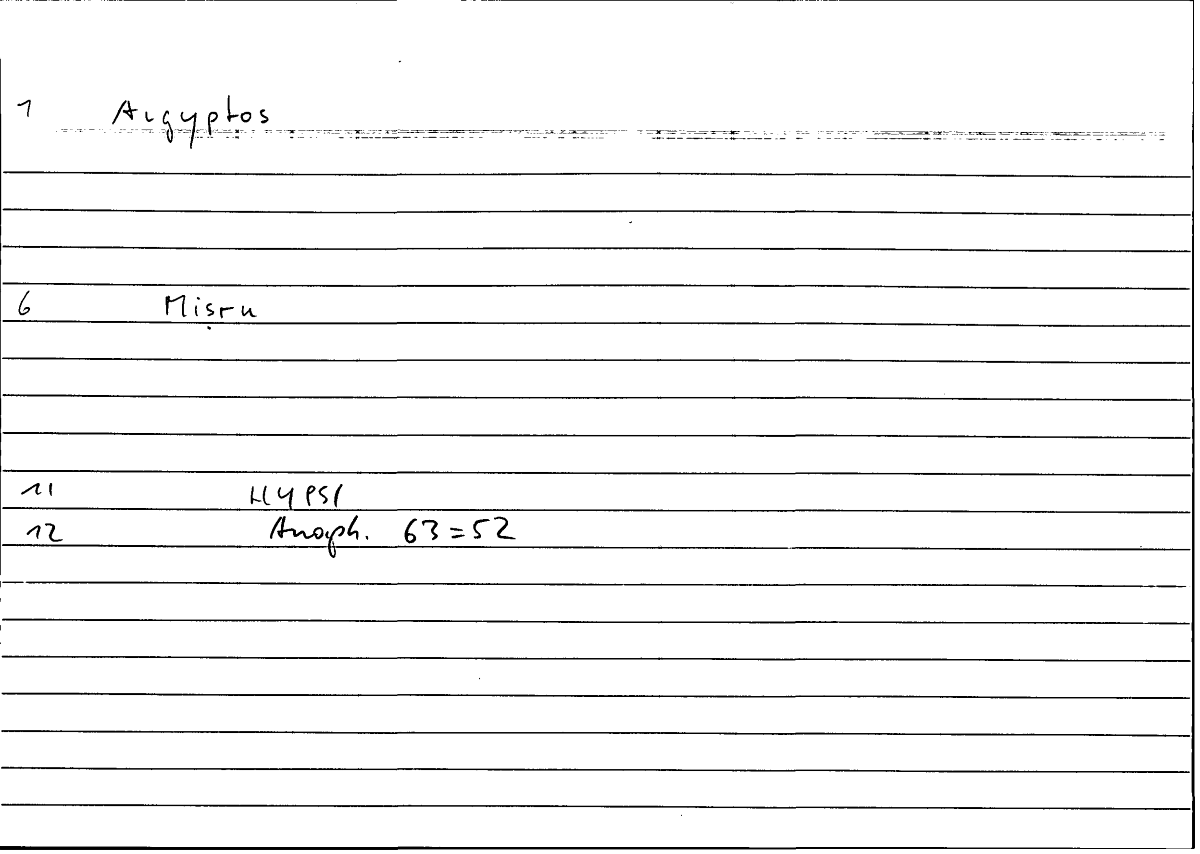 1 Aigyptos
6 Miṣru
11 HYPSI
12 Anaph. 63=52